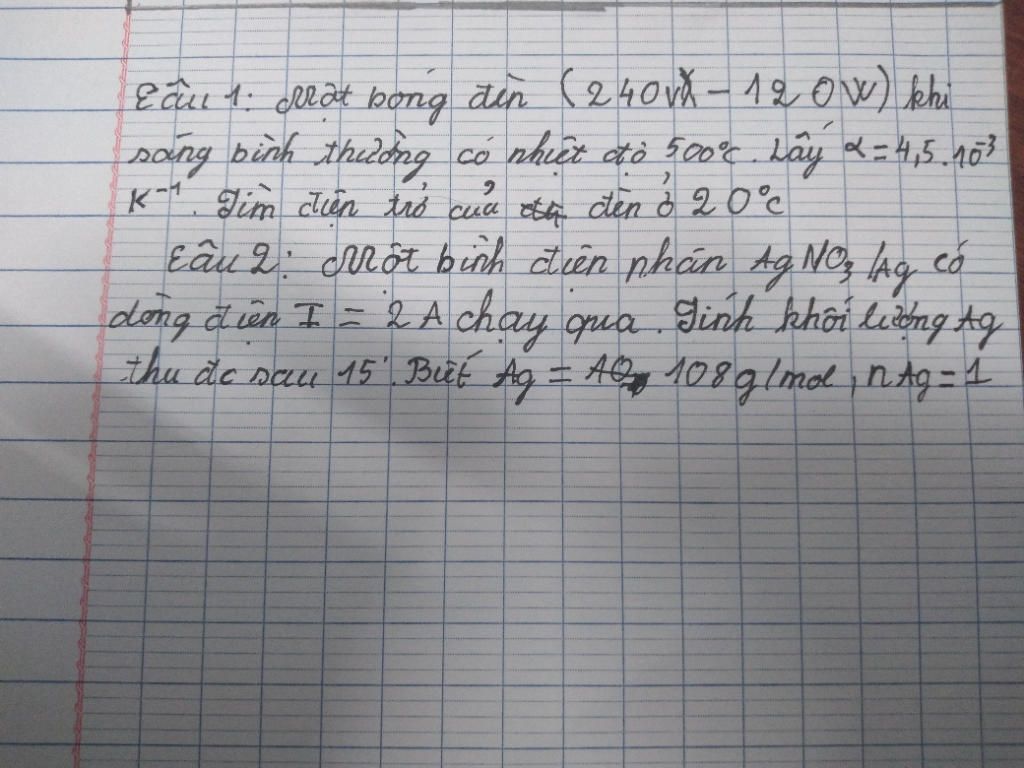 Câu 1: Một bóng đèn (240V - 120W) khi
sáng bình thường có nhiệt độ 500°c. Lấy α = 4,5.10⁻³
K⁻¹. Tìm điện trở của đèn ở 20°c
Câu 2: Một bình điện phân AgNO₃/Ag có
dòng điện I = 2A chạy qua. Tính khối lượng Ag
thu đc sau 15'. Biết Ag = 108g/mol, nAg = 1